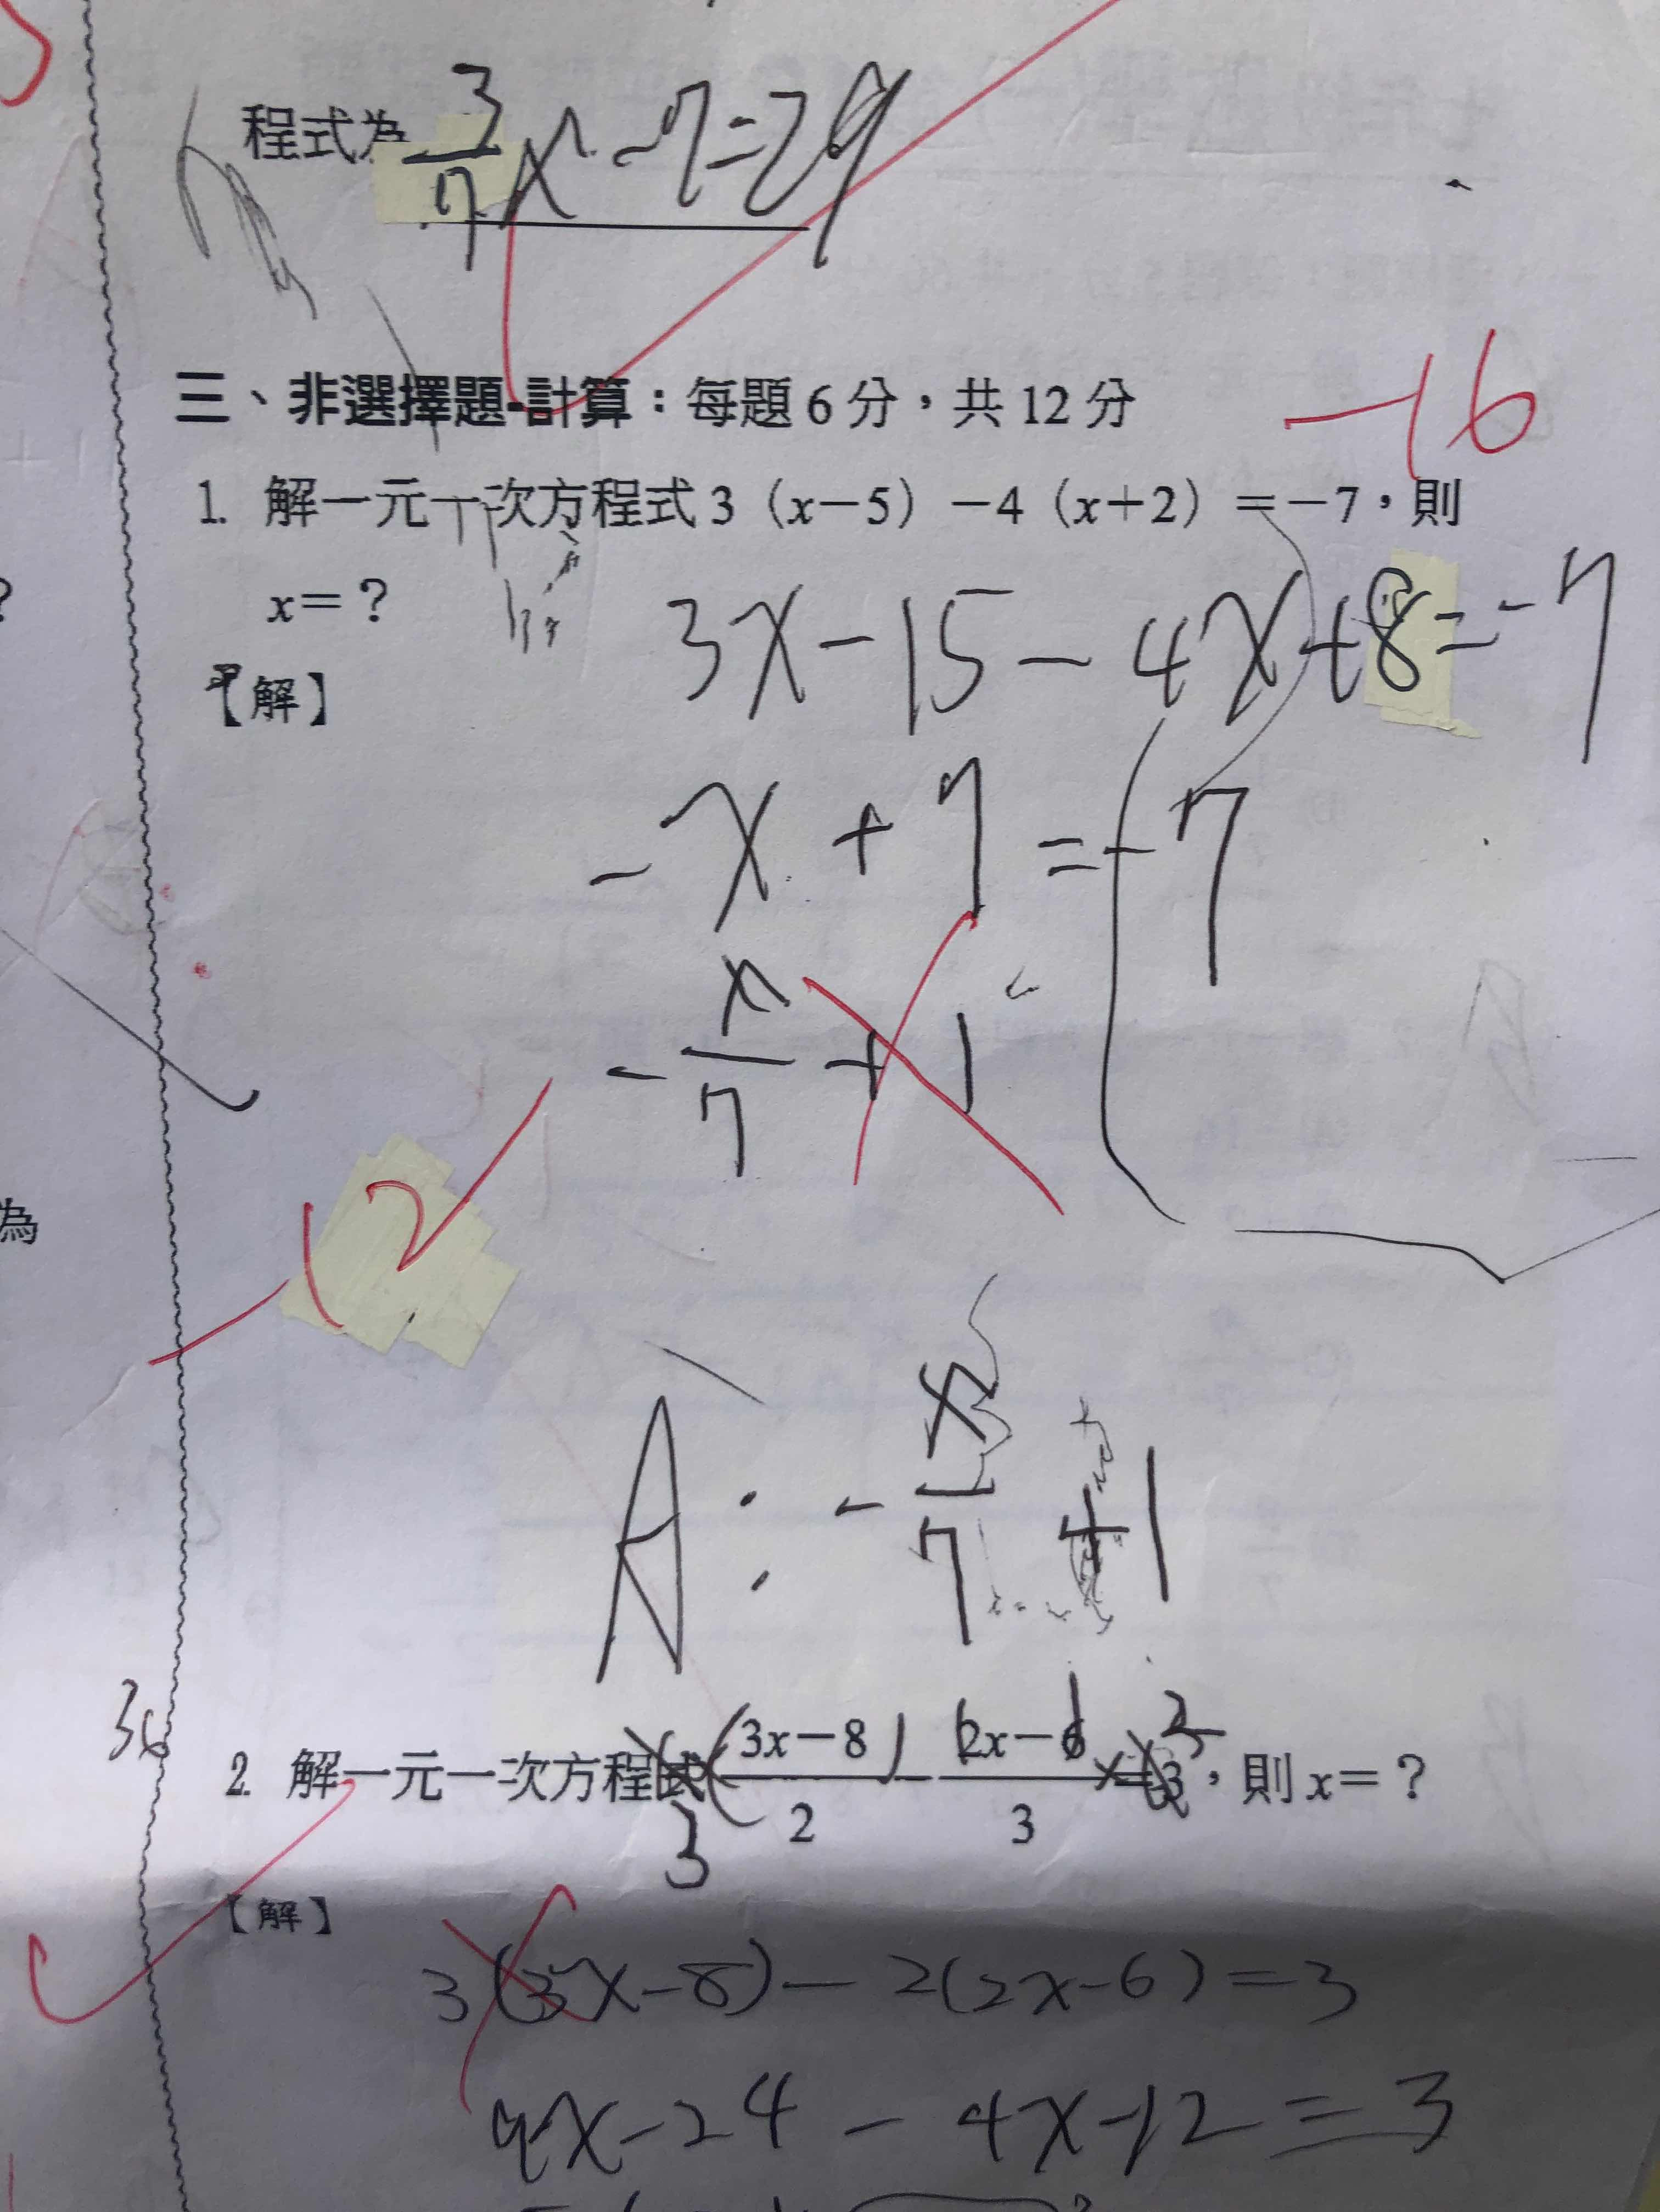 程式為 3/7 x - 7 = 29
三、非選擇題-計算：每題6分，共12分
-16
1. 解一元一次方程式3（x－5）－4（x＋2）＝－7，則
x＝？
3x-15-4x+8=-7
【解】
-x+7=-7
-x/7+1
-12
A:-x/7+1
36
2. 解一元一次方程式 (3x－8)/2 － (2x－6)/3 ＝3，則x＝？
3
2
【解】
3(3x-8)-2(2x-6)=3
9x-24-4x-12=3
為